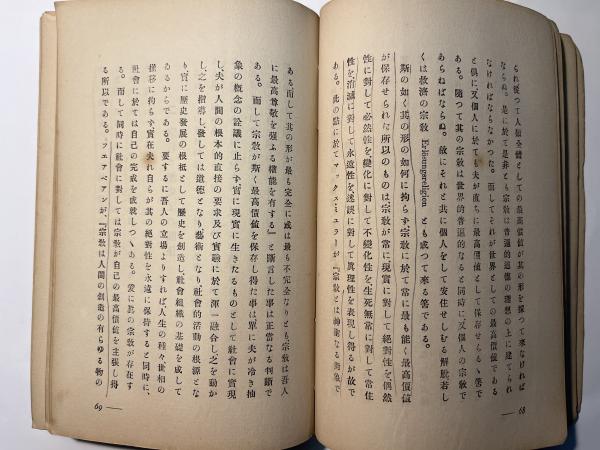 られ從つて人類全體としての最高價値が其の形を採つて來なければ
ならぬ。是に於て是非とも宗敎は普遍的道德の理想の上に建てられ
なければならなかつた。而してそれが世界としての最高價値である
と倶に又個人に於ても夫が直ちに最高價値として保存せらるゝ筈で
ある。隨つて其の宗敎は世界的普遍的なると同時に又個人の宗敎で
あらねばならぬ。故にそれと共に個人をして安住せしむる解脫若し
くは救濟の宗敎 Erlösungsreligion とも成つて來る筈である。
斯の如く其の形の如何に拘らず、宗敎に於て常に最も能く最高價値
が保存せられた所以のものは宗敎が常に現實に對して絕對性を、偶然
性に對して必然性を、變化に對して不變化性を、生死無常に對して常住
性を、消滅に對して永遠性を、迷誤に對して眞理性を表現し得るが故で
ある。此の點に於てマックス・ミュラーが『宗敎とは神聖なる對象で
68
ある而して其の形が最も完全に或は最も不完全なりとも、宗敎は吾人
に最高尊敬を强ふる權能を有する』と斷言した事は正當なる判斷で
ある。而して宗敎が斯く最高價値を保存し得た事は單に夫が冷き抽
象の槪念の詮議に止らず、實に現實に生きたるものとして社會に實現
し、夫が人間の根本的直接の要求及び實驗に於て渾一融合し之を動か
し、之を指導し發しては道德となり藝術となり社會的活動の根源とな
り實に歷史發展の根柢として歷史を創造し、社會組織の基礎を成して
ゐるからである。要するに吾人の立場よりすれば人生の種々世相の
推移に拘らず實在夫れ自らが其の絕對性を永遠に保持すると同時に、
社會に於ては自己の完成を成就しつゝある。爰に眞の宗敎が存在す
る。而して同時に社會に對しては宗敎が自己の最高價値を主張し得
る所以である。フエアバアンが、『宗敎は人間の創造の有らゆる物の
69